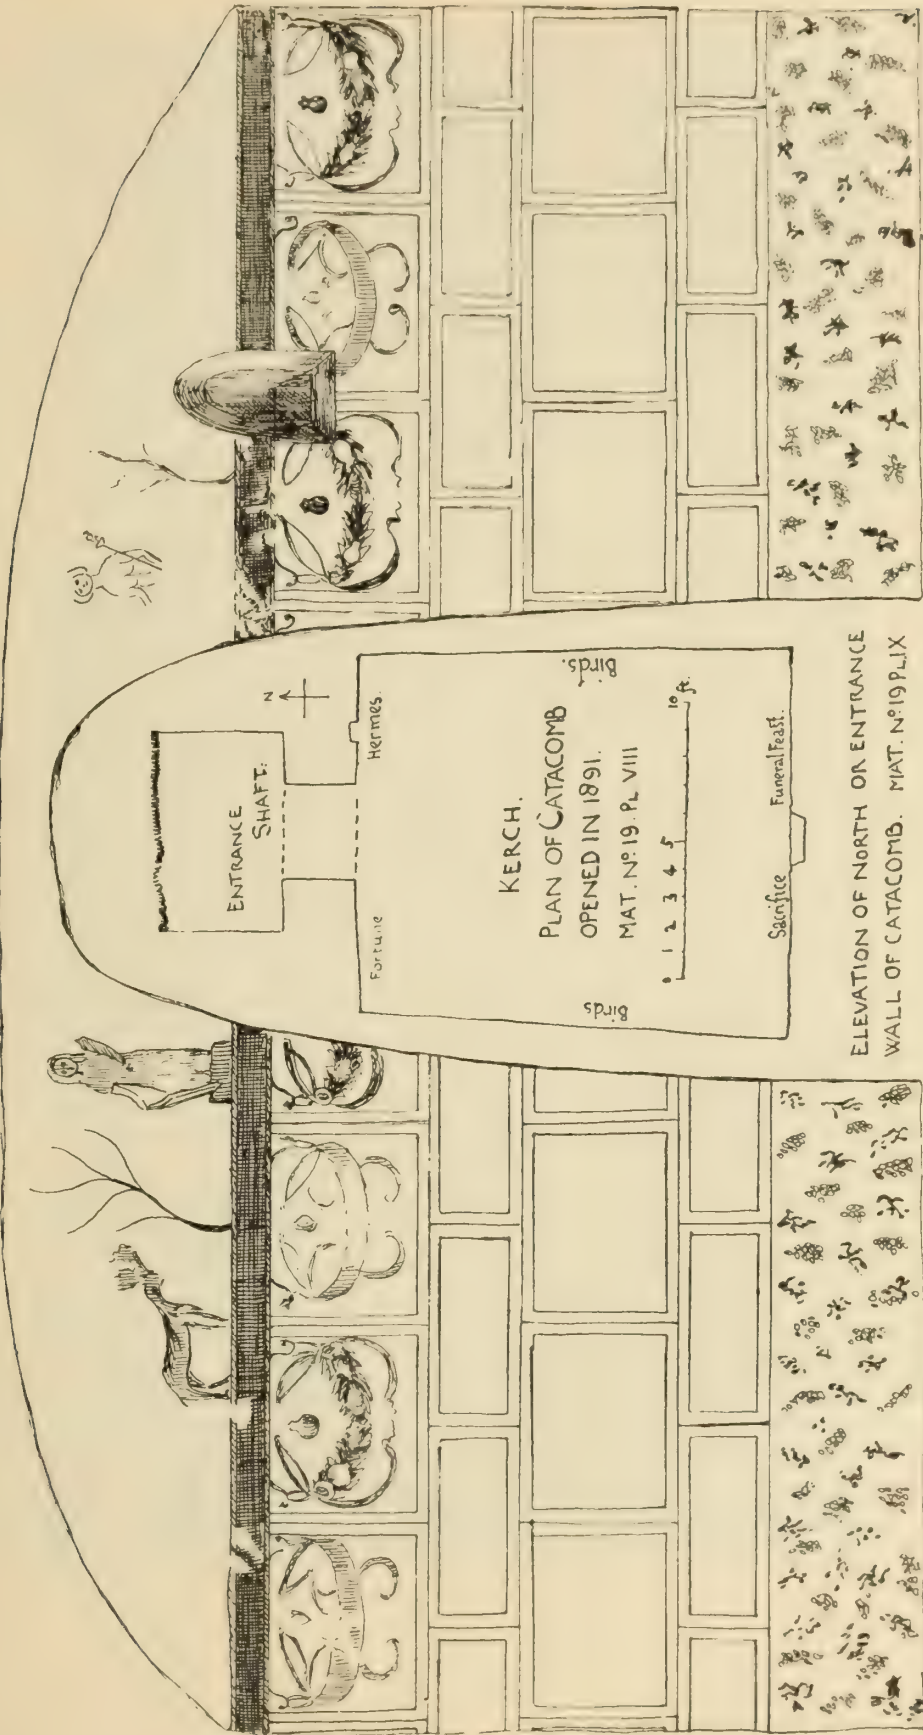 N
ENTRANCE
SHAFT.
Fortune
Hermes.
KERCH.
PLAN OF CATACOMB
OPENED IN 1891.
MAT. Nº 19. PL VIII
Birds
Birds.
0 1 2 3 4 5 10 ft.
Sacrifice
Funeral Feast.
ELEVATION OF NORTH OR ENTRANCE
WALL OF CATACOMB. MAT. Nº 19 PL.IX